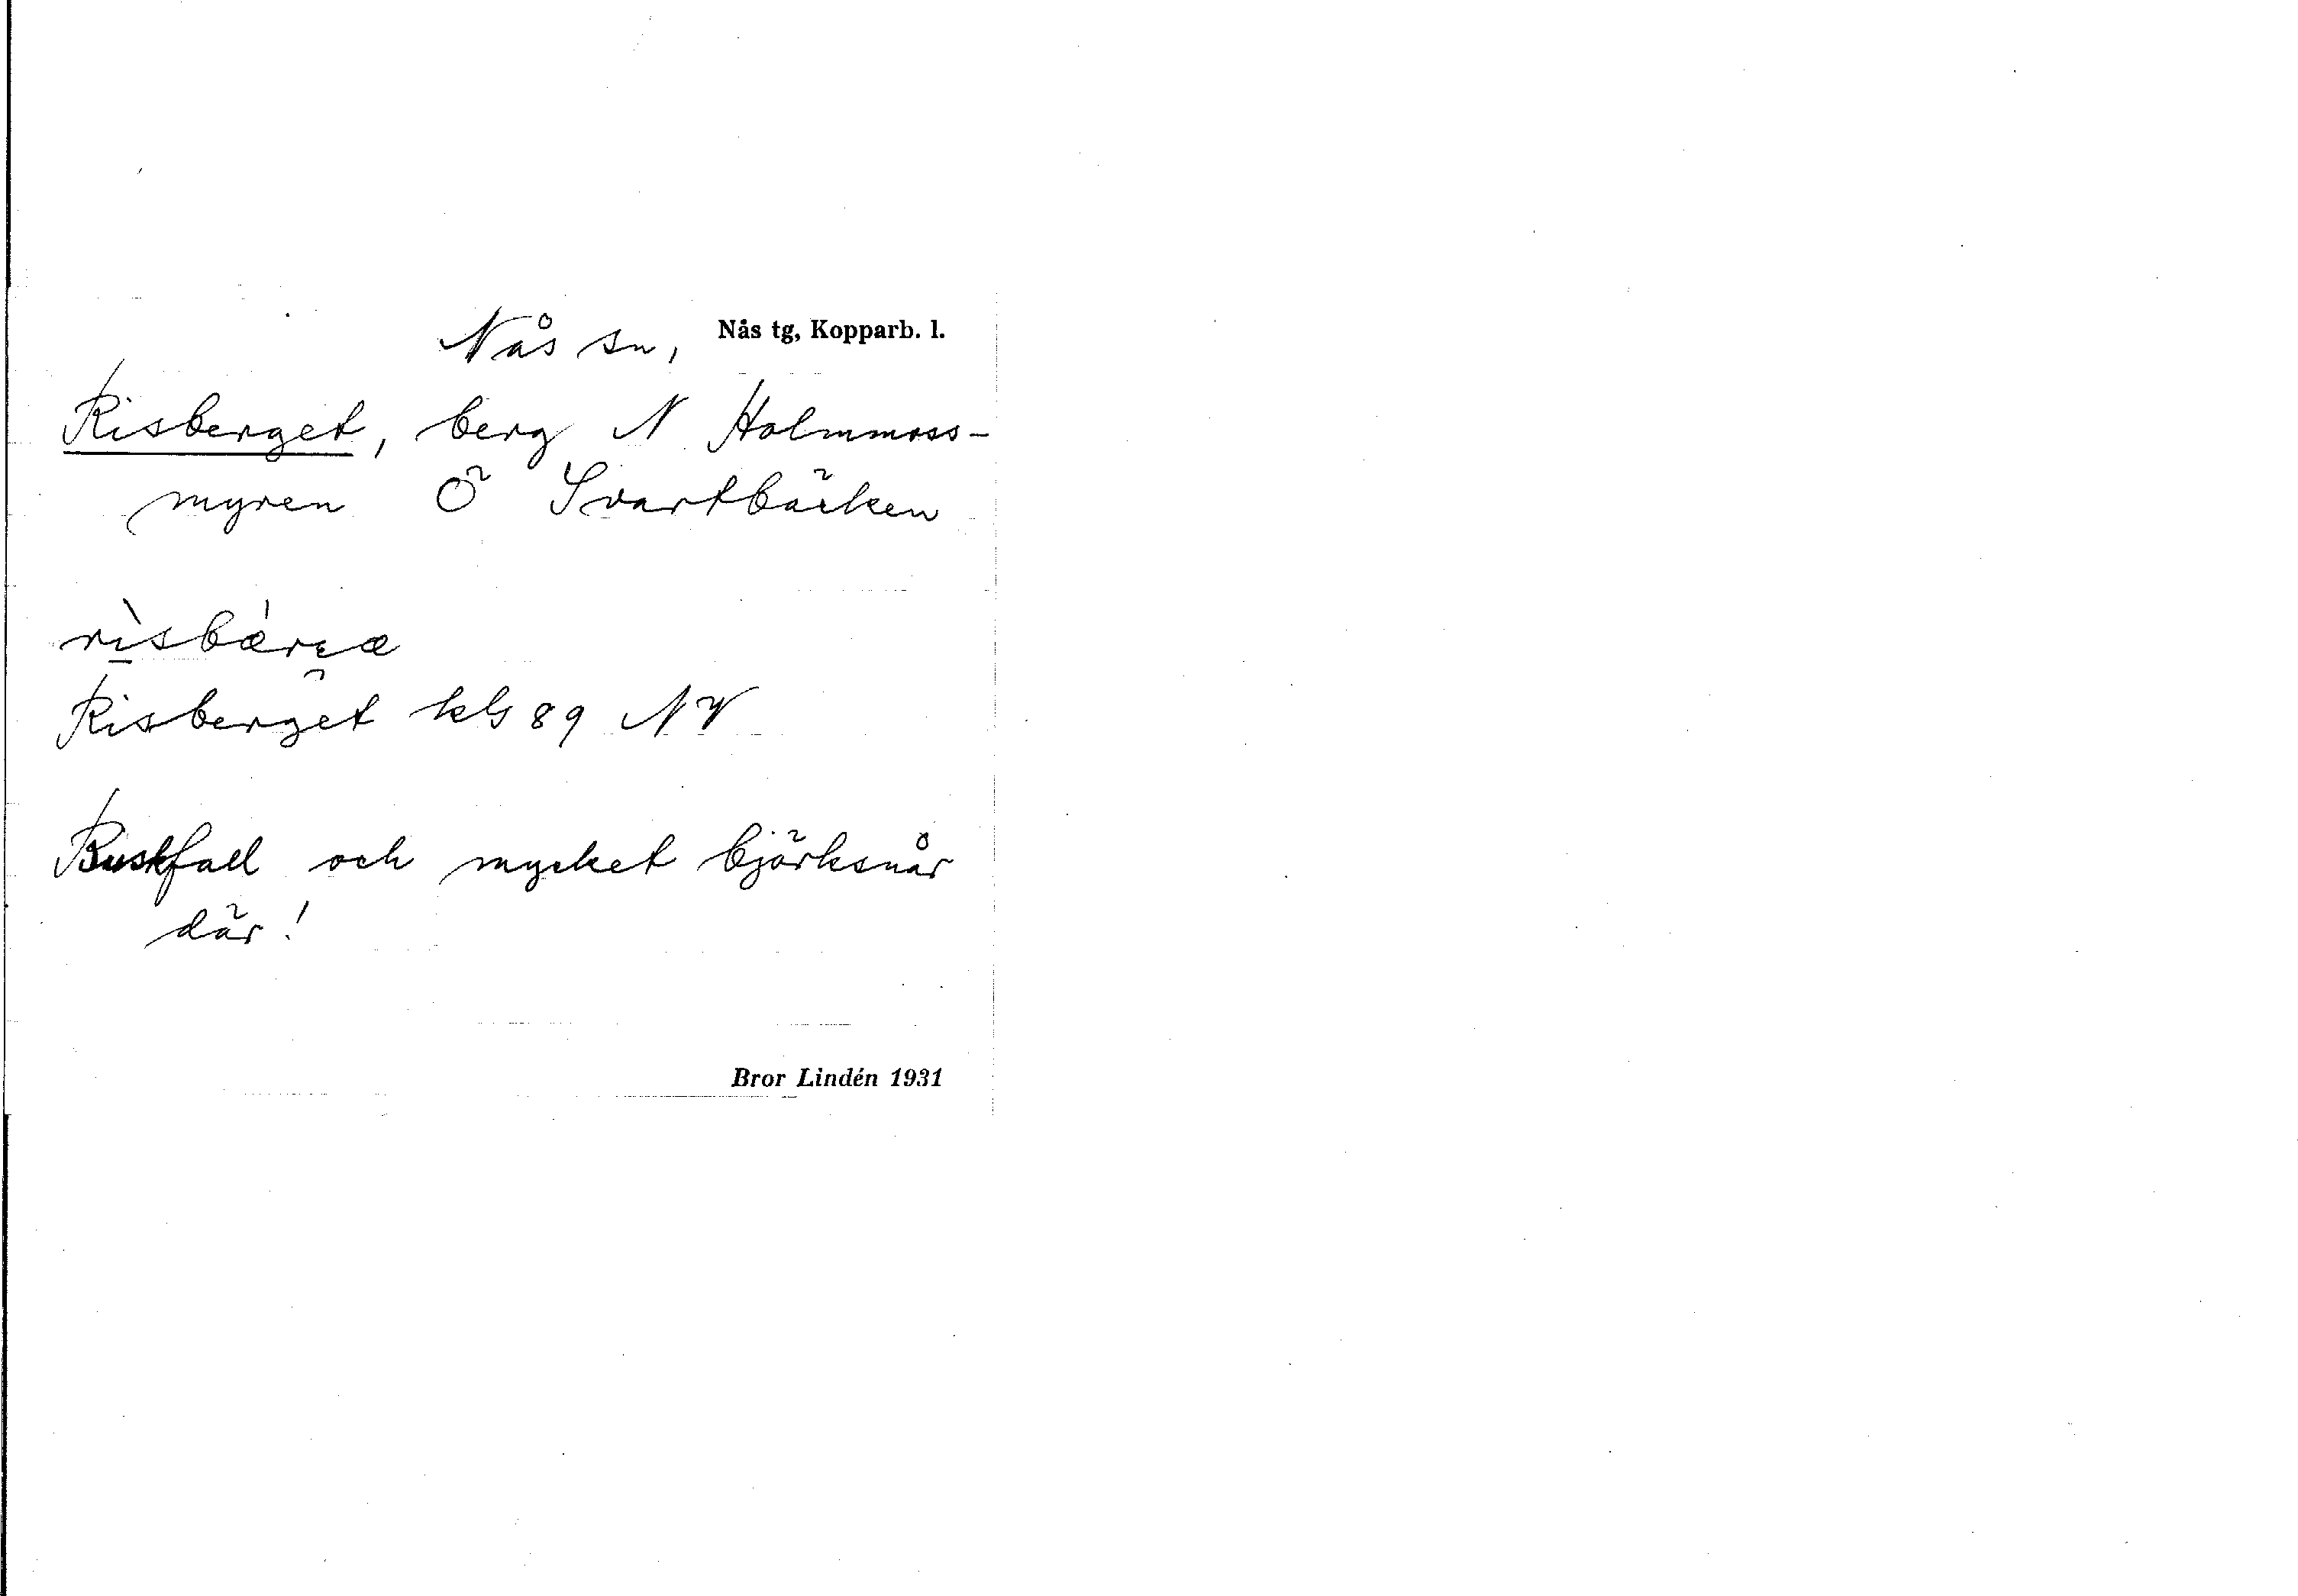 Nås sn, Nås tg, Kopparb. l.
Risberget, berg N Holmmoss-
myren Ö Svartbäcken
Risberget kbl 89 NV
Buskfall och mycket björksnår
där!
Bror Lindén 1931